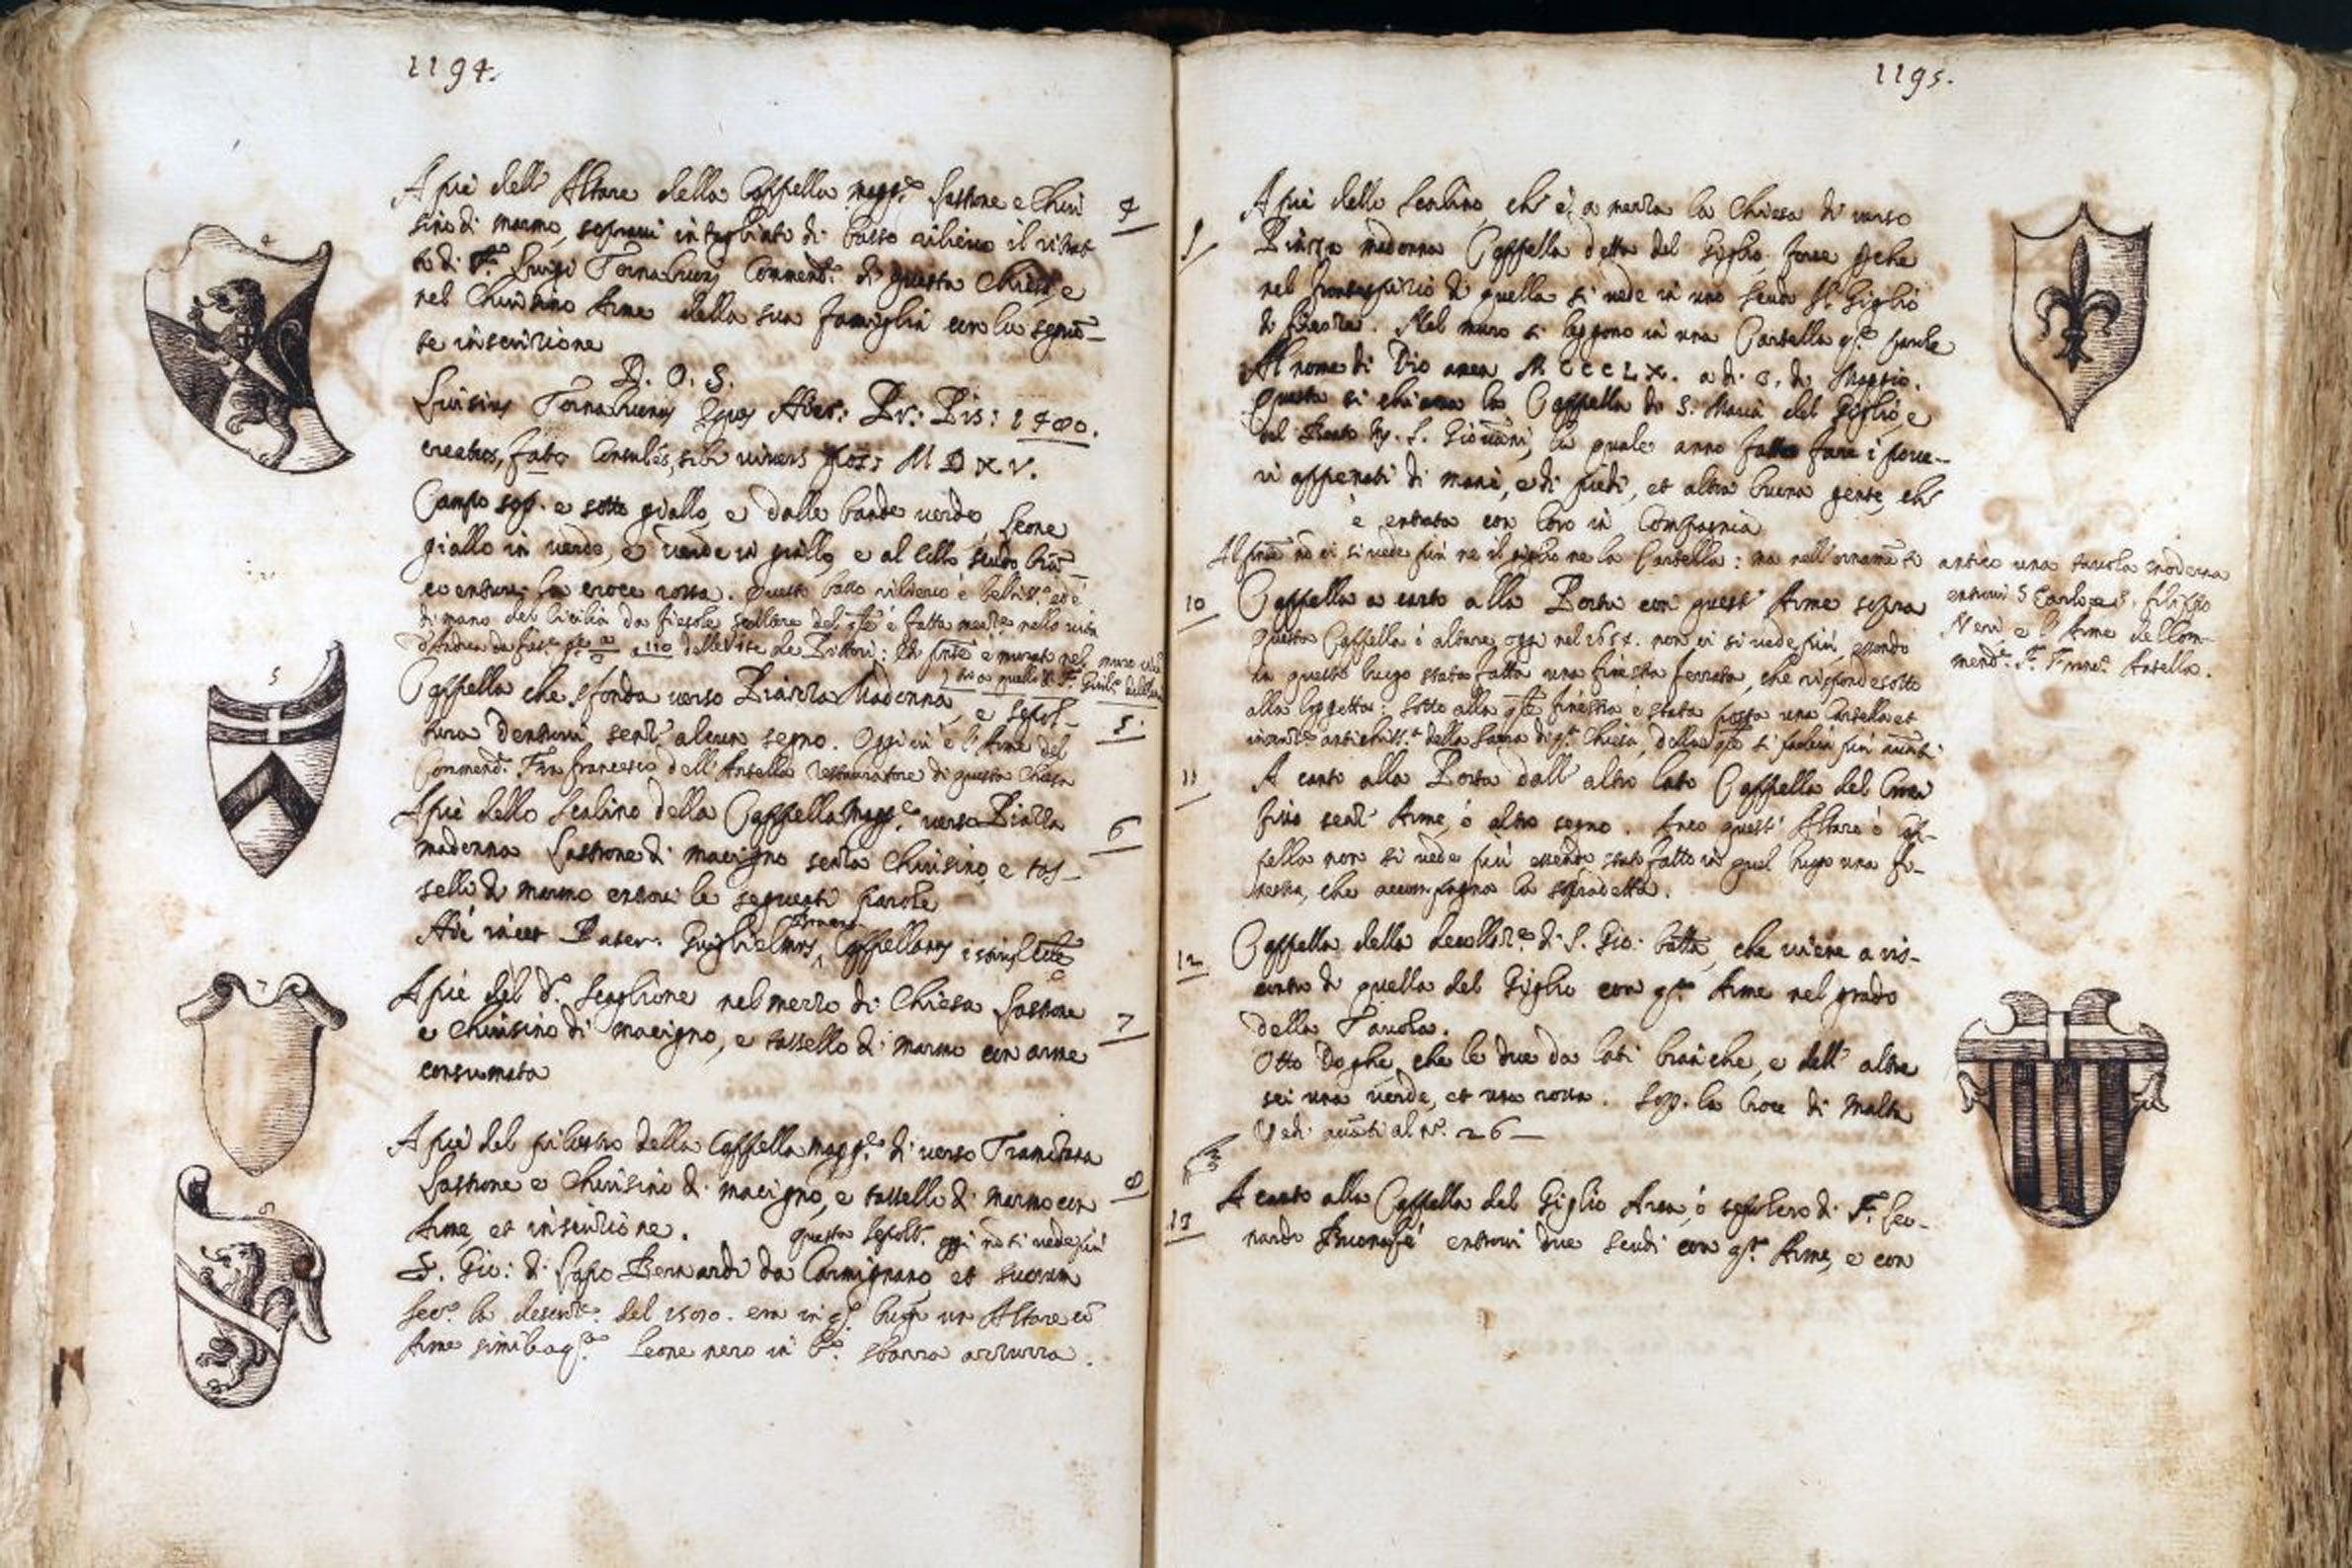 1194.
A piè dell' Altare della Cappella magg.re lastrone e chiu
sino di marmo, sopravi intagliato di basso rilievo il ritrat
to di F. Luigi Tornabuoni Commend.re di questa Chiesa, e
nel chiusino Arme della sua famiglia con la seguē
te inscrizione
D. O. S.
Luisius Tornabuonus Eques Hier: Pr: Pis: 1480.
creatus, fato consules, sibi vivens pos: MDXV.
Campo sop. e sotto giallo, e dalle bande verde, leone
giallo in verde, e verde in giallo, e al collo scudo biā
co entrovi la croce rossa. Questo basso rilievo è belliss.o ed è
di mano del Cicilia da fiesole scultore del q.le è fatta menz.e nella vita
d'Andrea da fies.e
Cappella che sfonda verso Piazza Madonna, e sepol-
tura dentrovi senz' alcun segno. Oggi vi è l'Arme del
Commend. Fra francesco dell'Antella restauratore di questa chiesa
A piè dello scalino della Cappella Magg.re verso Piazza
madonna lastrone di macigno senza chiusino, e tas-
sello di marmo entrovi le seguenti parole
Hic iacet Pater: Guglielmus Cappellanus
A piè del d.o scaglione nel mezzo di Chiesa lastrone
e chiusino di macigno, e tassello di marmo con arme
consumata
A piè del pilastro della Cappella magg.re di verso Tramōtana
lastrone e chiusino di macigno, e tassello di marmo con
Arme, et inscrizione. questa sepolt. oggi nō si vede più
S. Gio: di Lapo Bernardi da Carmignano et suorum
era in q.o luogo un Altare cō
Arme simile a q.a leone nero in b.o sbarra azzurra.
4
5
6
7
8
1195.
9
A piè dello scalino, ch' è, a mezza la Chiesa di verso
Piazza madonna Cappella detta del Giglio, forse p che
nel frontespizio di quella si vede in uno scudo Il Giglio
di fiorēza. Nel muro si leggono in una Cartella q.te parole
Al nome di Dio amen MCCCLX. a dì 8. di Maggio.
Questa si chiama la Cappella di S. Maria del Giglio, e
del Beato M. S. Giovāni, la quale anno fatta fare i pove-
ri appenati di mani, e di piedi, et altra buona gente, ch'
è entrata con loro in Compagnia
Al p̄nte nō vi si vede più ne il giglio ne la Cartella: ma nell'ornamēto antico una tavola moderna
entrovi S. Carlo, e S. filippo
Neri, e l'Arme del Com-
mend.re F. Franc.o Antella.
10
Cappella a canto alla Porta con quest' Arme sopra
Questa Cappella ò altare oggi nel 1657. non vi si vede più, essendo
in questo luogo stata fatta una finestra ferrata, che risponde sotto
alla loggetta: sotto alla q.le finestra è stata posta una Cartella et
antichiss.a della Sagra di q.a Chiesa, della q.le si parlerà più avāti
11
A canto alla Porta dall' altro lato Cappella del Croci
fisso senz' Arme, ò altro segno. Anco quest' Altare ò Cap-
pella non si vede più essendo stato fatto in quel luogo una fi-
nestra, che accompagna la sopradetta.
12
Cappella della decollaz.e di S. Gio: Batta, che viene a ris-
contro di quella del Giglio con q.a Arme nel grado
della Tavola.
Otto Doghe, che le due da lati bianche, e dell' altre
sei una verde, et una rossa. Sop. la Croce di Malta
Vedi avāti al N.o 26
13
A canto alla Cappella del Giglio Arca, ò sepolcro di F. Leo-
nardo Buonafè entrovi due scudi con q.a Arme, e con